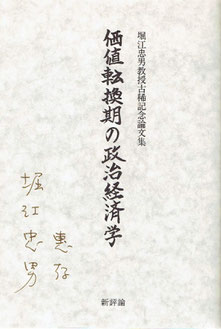 堀江忠男教授古稀記念論文集
価値転換期の政治経済学
惠存
堀江忠男
新評論